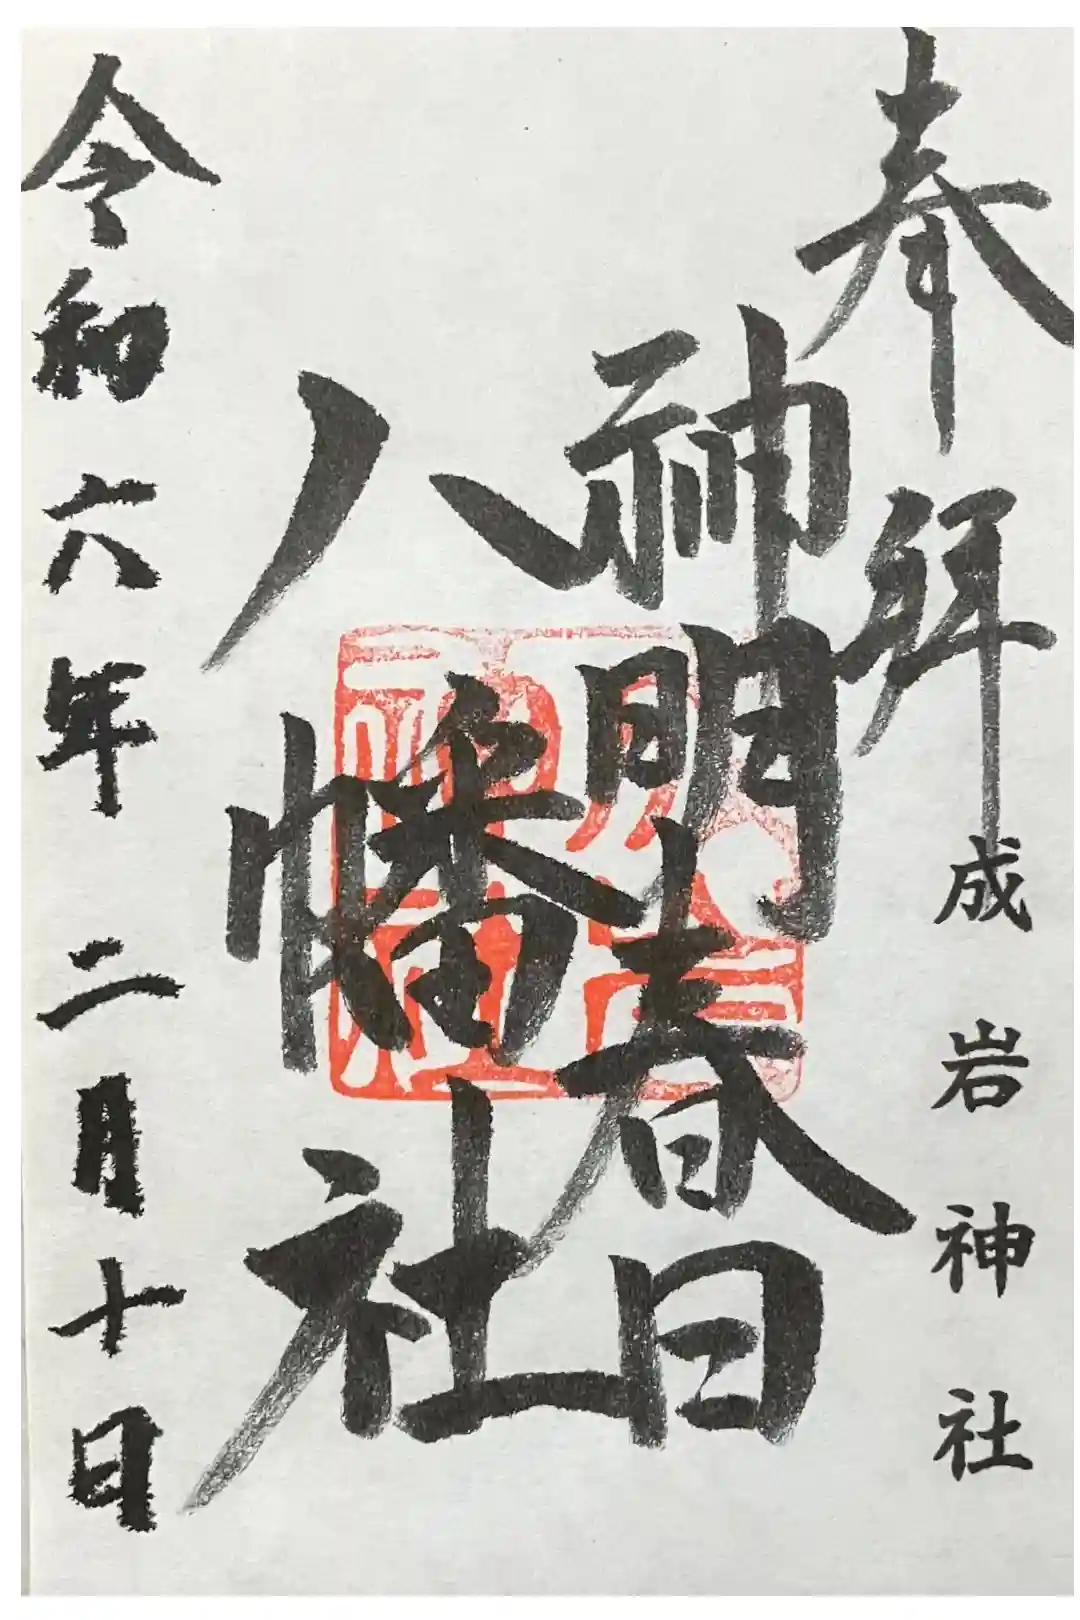 奉拜
成岩神社
神明春日
八幡社
令和六年二月十日